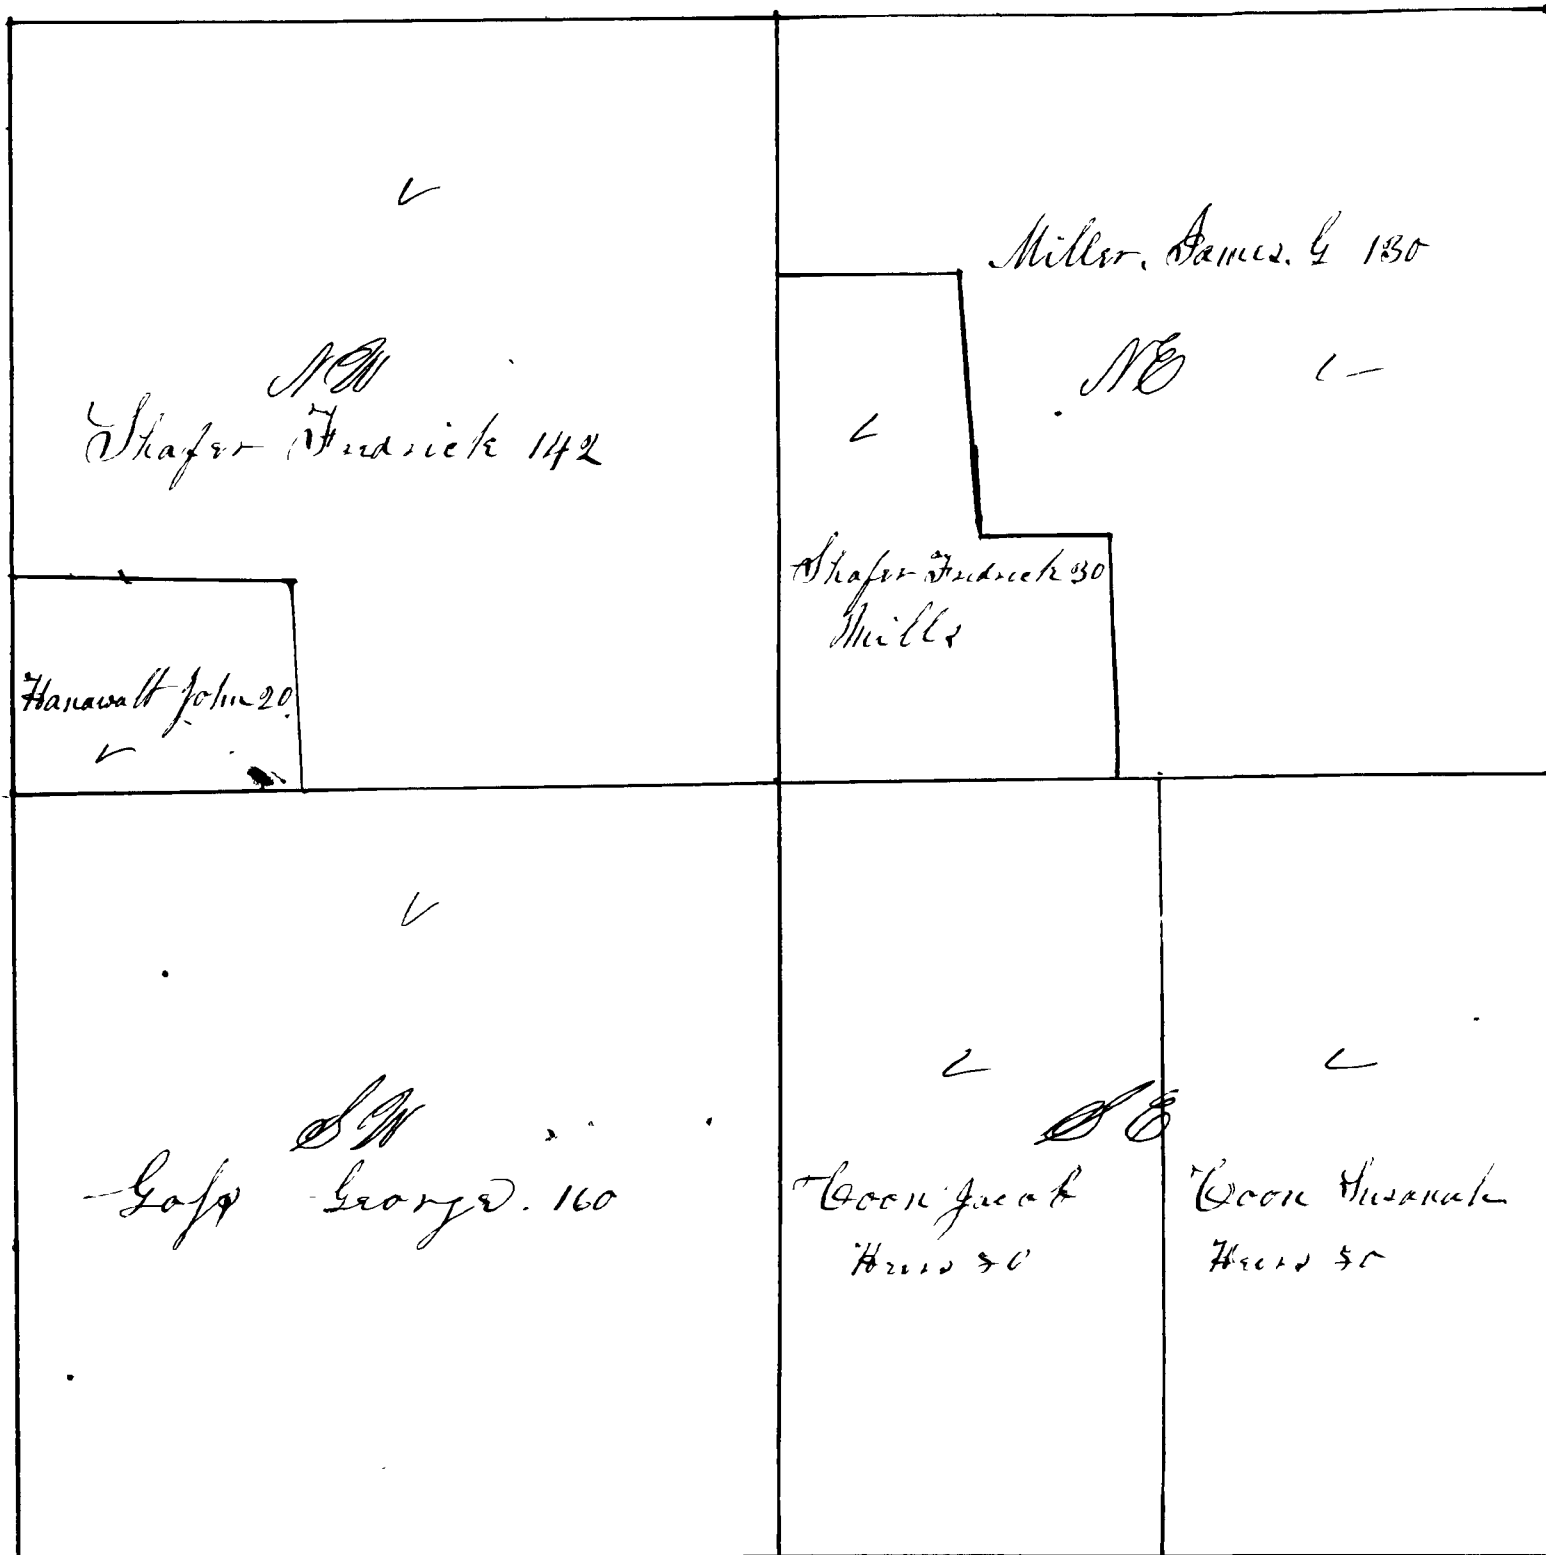 Miller, James. G 130
NW
NE
Shafer Fredrick 142
Shafer Fredrick 30
Mills
Hanawalt John 20
SW
SE
Goss George. 160
Coon Jacob
Heirs 80
Coon Susanah
Heirs 80